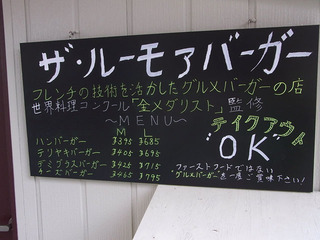 ザ・ルーモアバーガー
フレンチの技術を活かしたグルメバーガーの店
世界料理コンクール「金メダリスト」監修
～MENU～
テイクアウト
"OK"
M L
ハンバーガー ¥395 ¥685
テリヤキバーガー ¥405 ¥695
デミグラスバーガー ¥425 ¥715
チーズバーガー ¥465 ¥795
ファーストフードではない
グルメバーガーを一度ご賞味下さい!